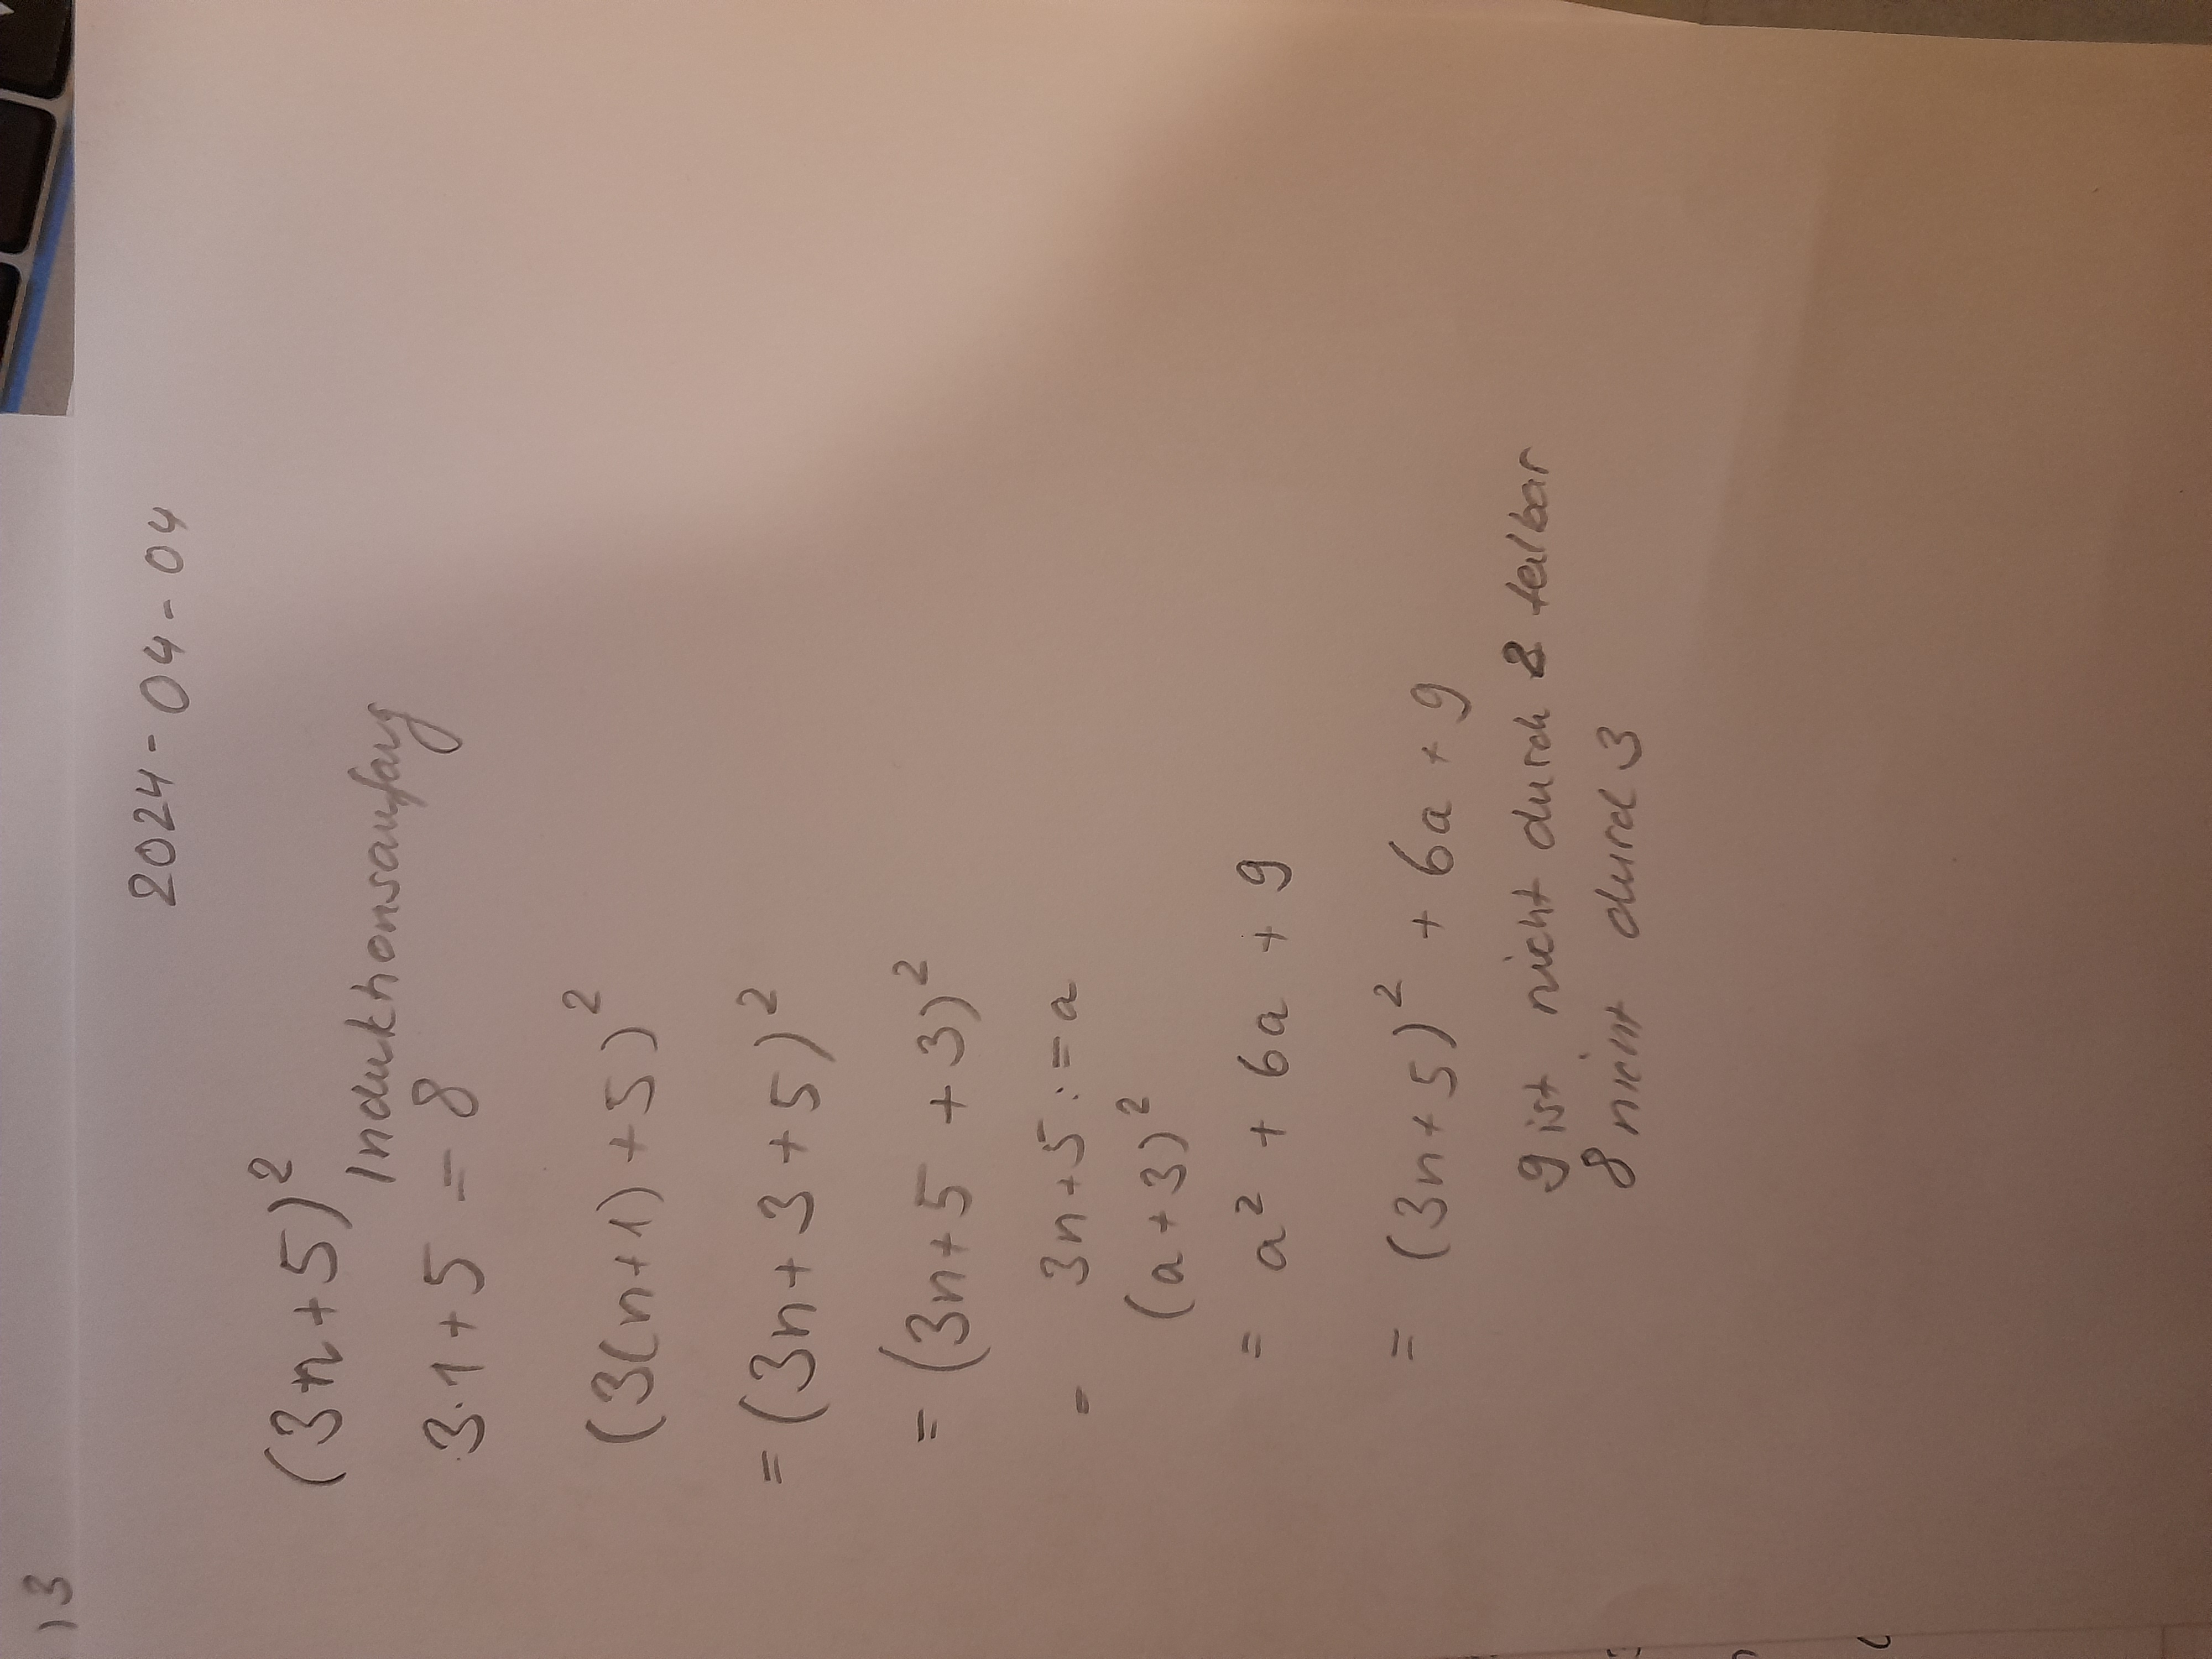 13
2024-04-04
(3n+5)²
Induktionsanfang
3·1+5 = 8
(3(n+1)+5)²
= (3n+3+5)²
= (3n+5 +3)²
= 3n+5 := a
(a+3)²
= a² + 6a + 9
= (3n+5)² + 6a + 9
9 ist nicht durch 8 teilbar
8 nicht durch 3